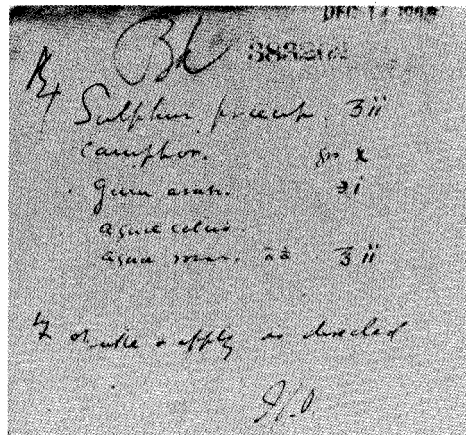 DEC 14
Bk
℞
Sulphur precip. ʒii
Camphor. gr x
Gum arab. ℈i
aquae calcis.
aquae rosar. āā ℥ii
shake & apply as directed